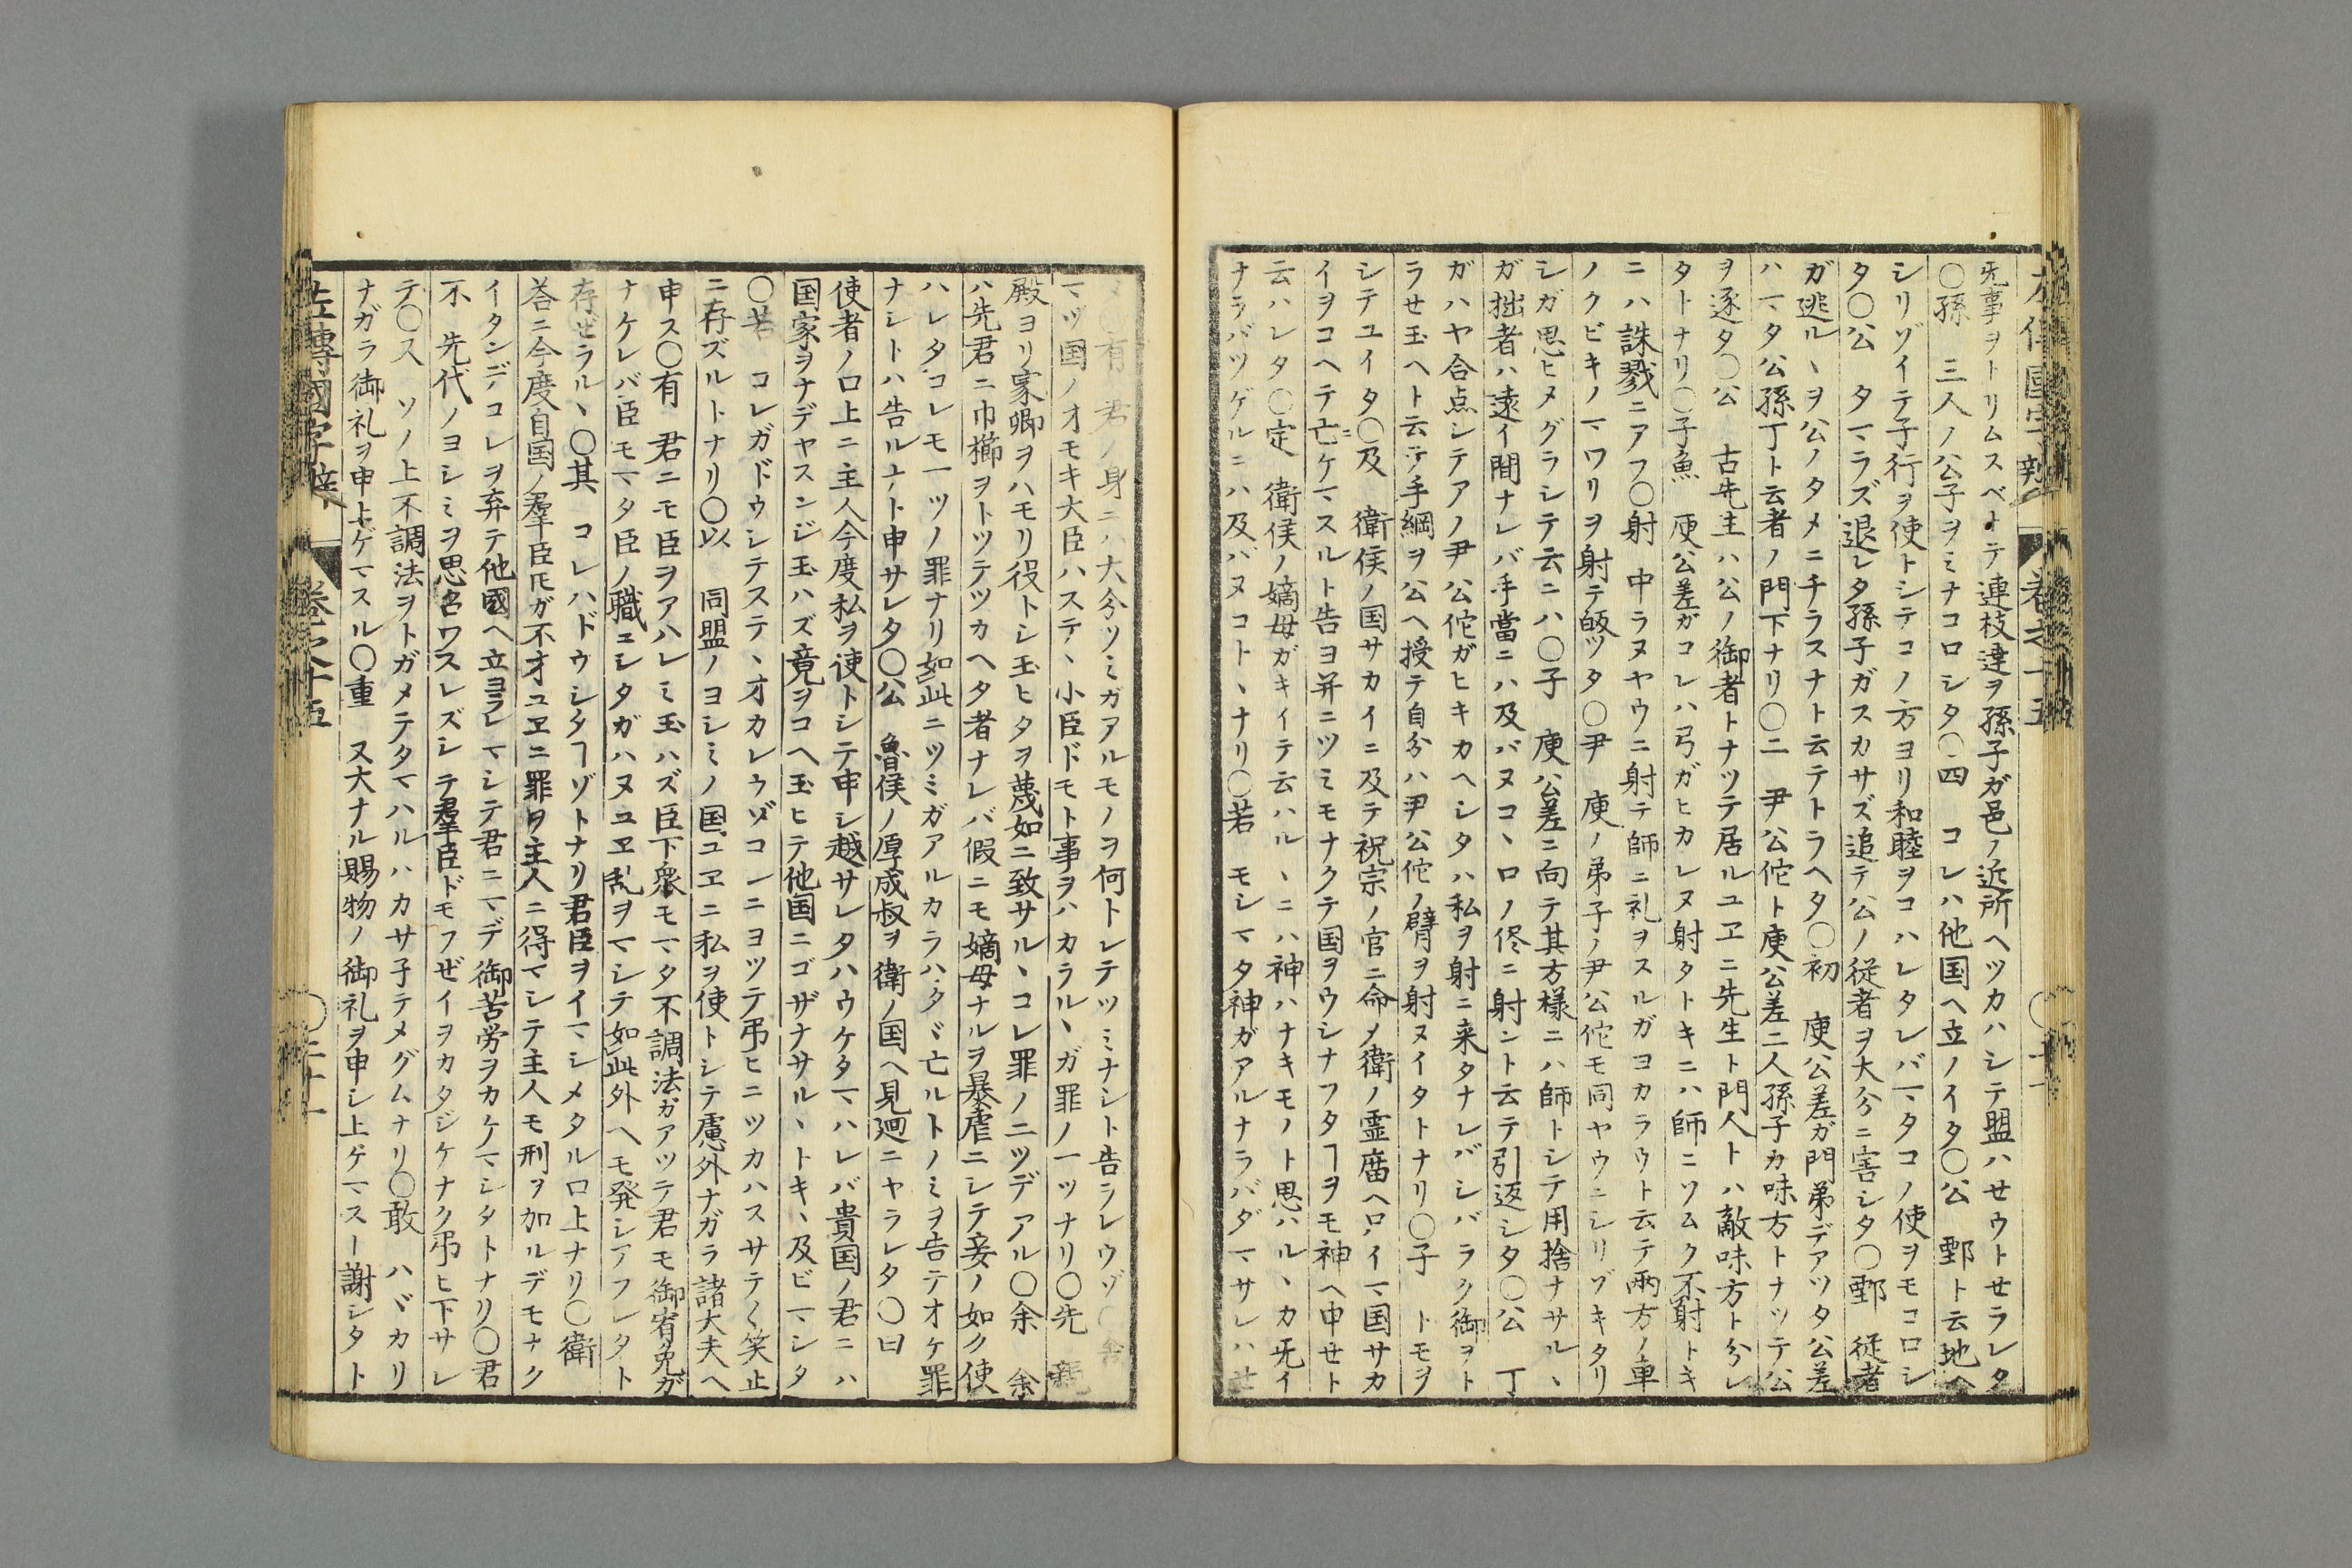 左傳國字辯 卷之十五
兂事ヲトリムスベトテ連枝達ヲ孫子ガ邑ノ近所ヘツカハシテ盟ハせウトせラレタ
〇孫 三人ノ公子ヲミナコロシタ〇四 コレハ他国ヘ立ノイタ〇公 鄄ト云地ヘ
シリゾイテ子行ヲ使トシテコノ方ヨリ和睦ヲコハレタレバマタコノ使ヲモコロシ
タ〇公 タマラズ退レタ孫子ガスカサズ追テ公ノ従者ヲ大分ニ害シタ〇鄄 従者
ガ逃ルヽヲ公ノタメニチラスナト云テトラヘタ〇初 庾公差ガ門弟デアツタ公差
ハマタ公孫丁ト云者ノ門下ナリ〇二 尹公佗ト庾公差二人孫子カ味方トナツテ公
ヲ逐タ〇公 古先主ハ公ノ御者トナツテ居ルユヱニ先生ト門人トハ敵味方ト分レ
タトナリ〇子魚 庾公差ガコレハ弓ガヒカレヌ射タトキニハ師ニソムク不射トキ
ニハ誅戮ニアフ〇射 中ラヌヤウニ射テ師ニ礼ヲスルガヨカラウト云テ兩方ノ車
ノクビキノマワリヲ射テ皈ツタ〇尹 庾ノ弟子ノ尹公佗モ同ヤウニシリゾキタリ
シガ思ヒメグラシテ云ニハ〇子 庾公差ニ向テ其方様ニハ師トシテ用捨ナサルヽ
ガ拙者ハ遠イ間ナレバ手當ニハ及バヌコヽロノ侭ニ射ント云テ引返シタ〇公 丁
ガハヤ合点シテアノ尹公佗ガヒキカヘシタハ私ヲ射ニ来タナレバシバラク御ヲト
ラせ玉ヘト云テ手綱ヲ公ヘ授テ自分ハ尹公佗ノ臂ヲ射ヌイタトナリ〇子 トモヲ
シテユイタ〇及 衛侯ノ国サカイニ及テ祝宗ノ官ニ命メ衛ノ霊廟ヘロイマ国サカ
イヲコヘテ亡ケマスルト告ヨ并ニツミモナクテ国ヲウシナフタヿヲモ神ヘ申せト
云ハレタ〇定 衛侯ノ嫡母ガキイテ云ハルヽニハ神ハナキモノト思ハルヽカ兂イ
ナラバツゲルニハ及バヌコトヽナリ〇若 モシマタ神ガアルナラバダマサレハせ
ヌ〇有 君ノ身ニハ大分ツミガアルモノヲ何トレテツミナシト告ラレウゾ〇舎
マヅ国ノオモキ大臣ハステヽ小臣ドモト事ヲハカラルヽガ罪ノ一ツナリ〇先 親
殿ヨリ家卿ヲハモリ役トシ玉ヒタヲ蔑如ニ致サルヽコレ罪ノ二ツデアル〇余 余
ハ先君ニ巾櫛ヲトツテツカヘタ者ナレバ假ニモ嫡母ナルヲ暴虐ニシテ妾ノ如ク使
ハレタコレモ一ツノ罪ナリ如此ニツミガアルカラハタヾ亡ルトノミヲ告テオケ罪
ナシトハ告ルナト申サレタ〇公 魯侯ノ厚成叔ヲ衛ノ国ヘ見廻ニヤラレタ〇曰
使者ノ口上ニ主人今度私ヲ使トシテ申シ越サレタハウケタマハレバ貴国ノ君ニハ
国家ヲナデヤスンジ玉ハズ竟ヲコヘ玉ヒテ他国ニゴザナサルヽトキヽ及ビマシタ
〇若 コレガドウシテステヽオカレウゾコレニヨツテ弔ヒニツカハスサテ〱笑止
ニ存ズルトナリ〇以 同盟ノヨシミノ国ユヱニ私ヲ使トシテ慮外ナガラ諸大夫ヘ
申ス〇有 君ニモ臣ヲアハレミ玉ハズ臣下衆モマタ不調法ガアツテ君モ御宥免ガ
ナケレバ臣モマタ臣ノ職ニシタガハヌユヱ乱ヲマシテ如此外ヘモ発シアフレタト
存ぜラルヽ〇其 コレハドウシタヿゾトナリ君臣ヲイマシメタル口上ナリ〇衛
荅ニ今度自国ノ羣臣𪜈ガ不才ユヱニ罪ヲ主人ニ得マシテ主人モ刑ヲ加ルデモナク
イタンデコレヲ弃テ他國ヘ立ヨラレマシテ君ニマデ御苦労ヲカケマシタトナリ〇君
不 先代ノヨシミヲ思召ワスレズシテ羣臣ドモフぜイヲカタジケナク弔ヒ下サレ
テ〇ス ソノ上不調法ヲトガメテタマハルハカサ子テメグムナリ〇敢 ハヾカリ
ナガラ御礼ヲ申上ケマスル〇重 又大ナル賜物ノ御礼ヲ申シ上ゲマスー謝シタト
左傳國字辯 卷之十五